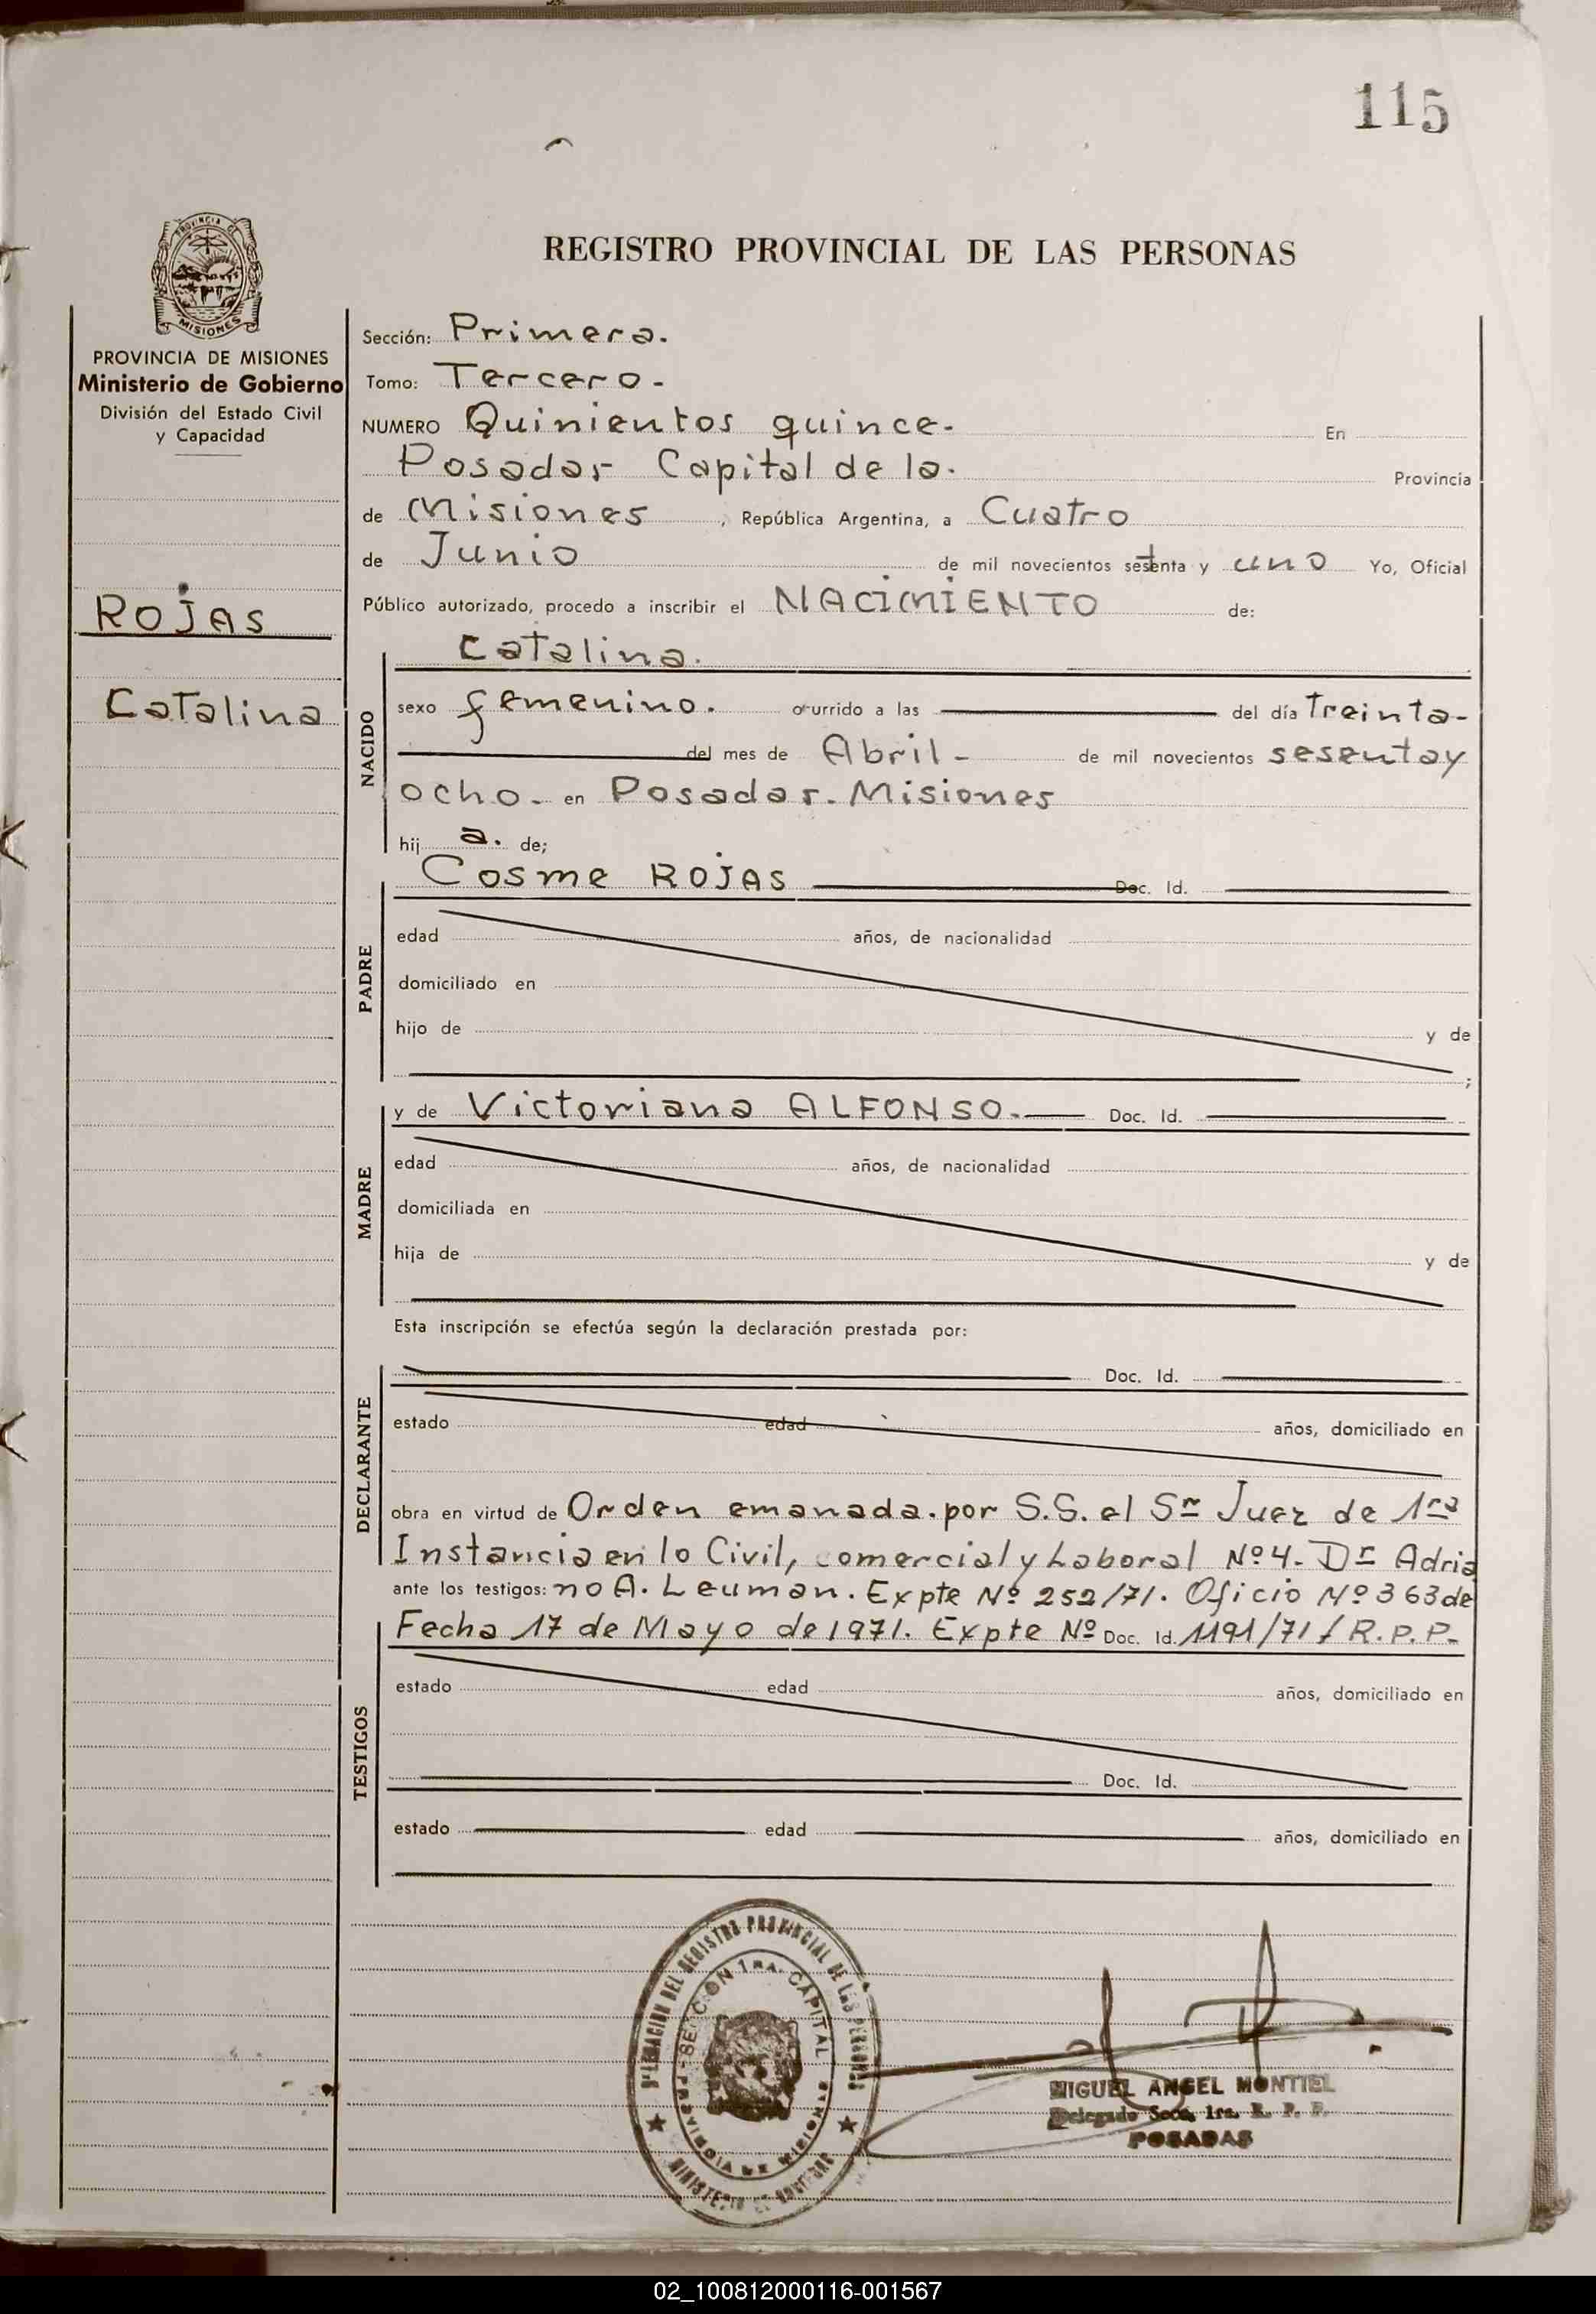 115
REGISTRO PROVINCIAL DE LAS PERSONAS
PROVINCIA DE
MISIONES
PROVINCIA DE MISIONES
Ministerio de Gobierno
División del Estado Civil
y Capacidad
ROJAS
Catalina
Sección: Primera.
Tomo: Tercero-
NUMERO Quinientos quince- En
Posadas Capital de la. Provincia
de Misiones, República Argentina, a Cuatro
de Junio de mil novecientos setenta y uno Yo, Oficial
Público autorizado, procedo a inscribir el NACIMIENTO de:
Catalina.
NACIDO
sexo femenino. ocurrido a las del día treinta-
del mes de Abril- de mil novecientos sesentay
ocho- en Posadas-Misiones
hij a. de;
Cosme ROJAS Doc. Id.
PADRE
edad años, de nacionalidad
domiciliado en
hijo de y de
;
y de Victoriana ALFONSO.- Doc. Id.
MADRE
edad años, de nacionalidad
domiciliada en
hija de y de
Esta inscripción se efectúa según la declaración prestada por:
Doc. Id.
DECLARANTE
estado edad años, domiciliado en
obra en virtud de Orden emanada.por S.S. el Sr Juez de 1ra
Instancia en lo Civil, comercial y Laboral Nº4-Dr Adria
ante los testigos: no A. Leuman. Expte Nº 252/71. Oficio Nº 363 de
Fecha 17 de Mayo de 1971. Expte Nº Doc. Id. 1191/71/R.P.P-
TESTIGOS
estado edad años, domiciliado en
Doc. Id.
estado edad años, domiciliado en
DELEGACION DEL REGISTRO PROVINCIAL DE LAS PERSONAS
SECCION 1RA. CAPITAL
PROVINCIA DE MISIONES
MINISTERIO DE GOBIERNO
MIGUEL ANGEL MONTIEL
Delegado Secc. 1ra. R. P. P.
POSADAS
02_100812000116-001567